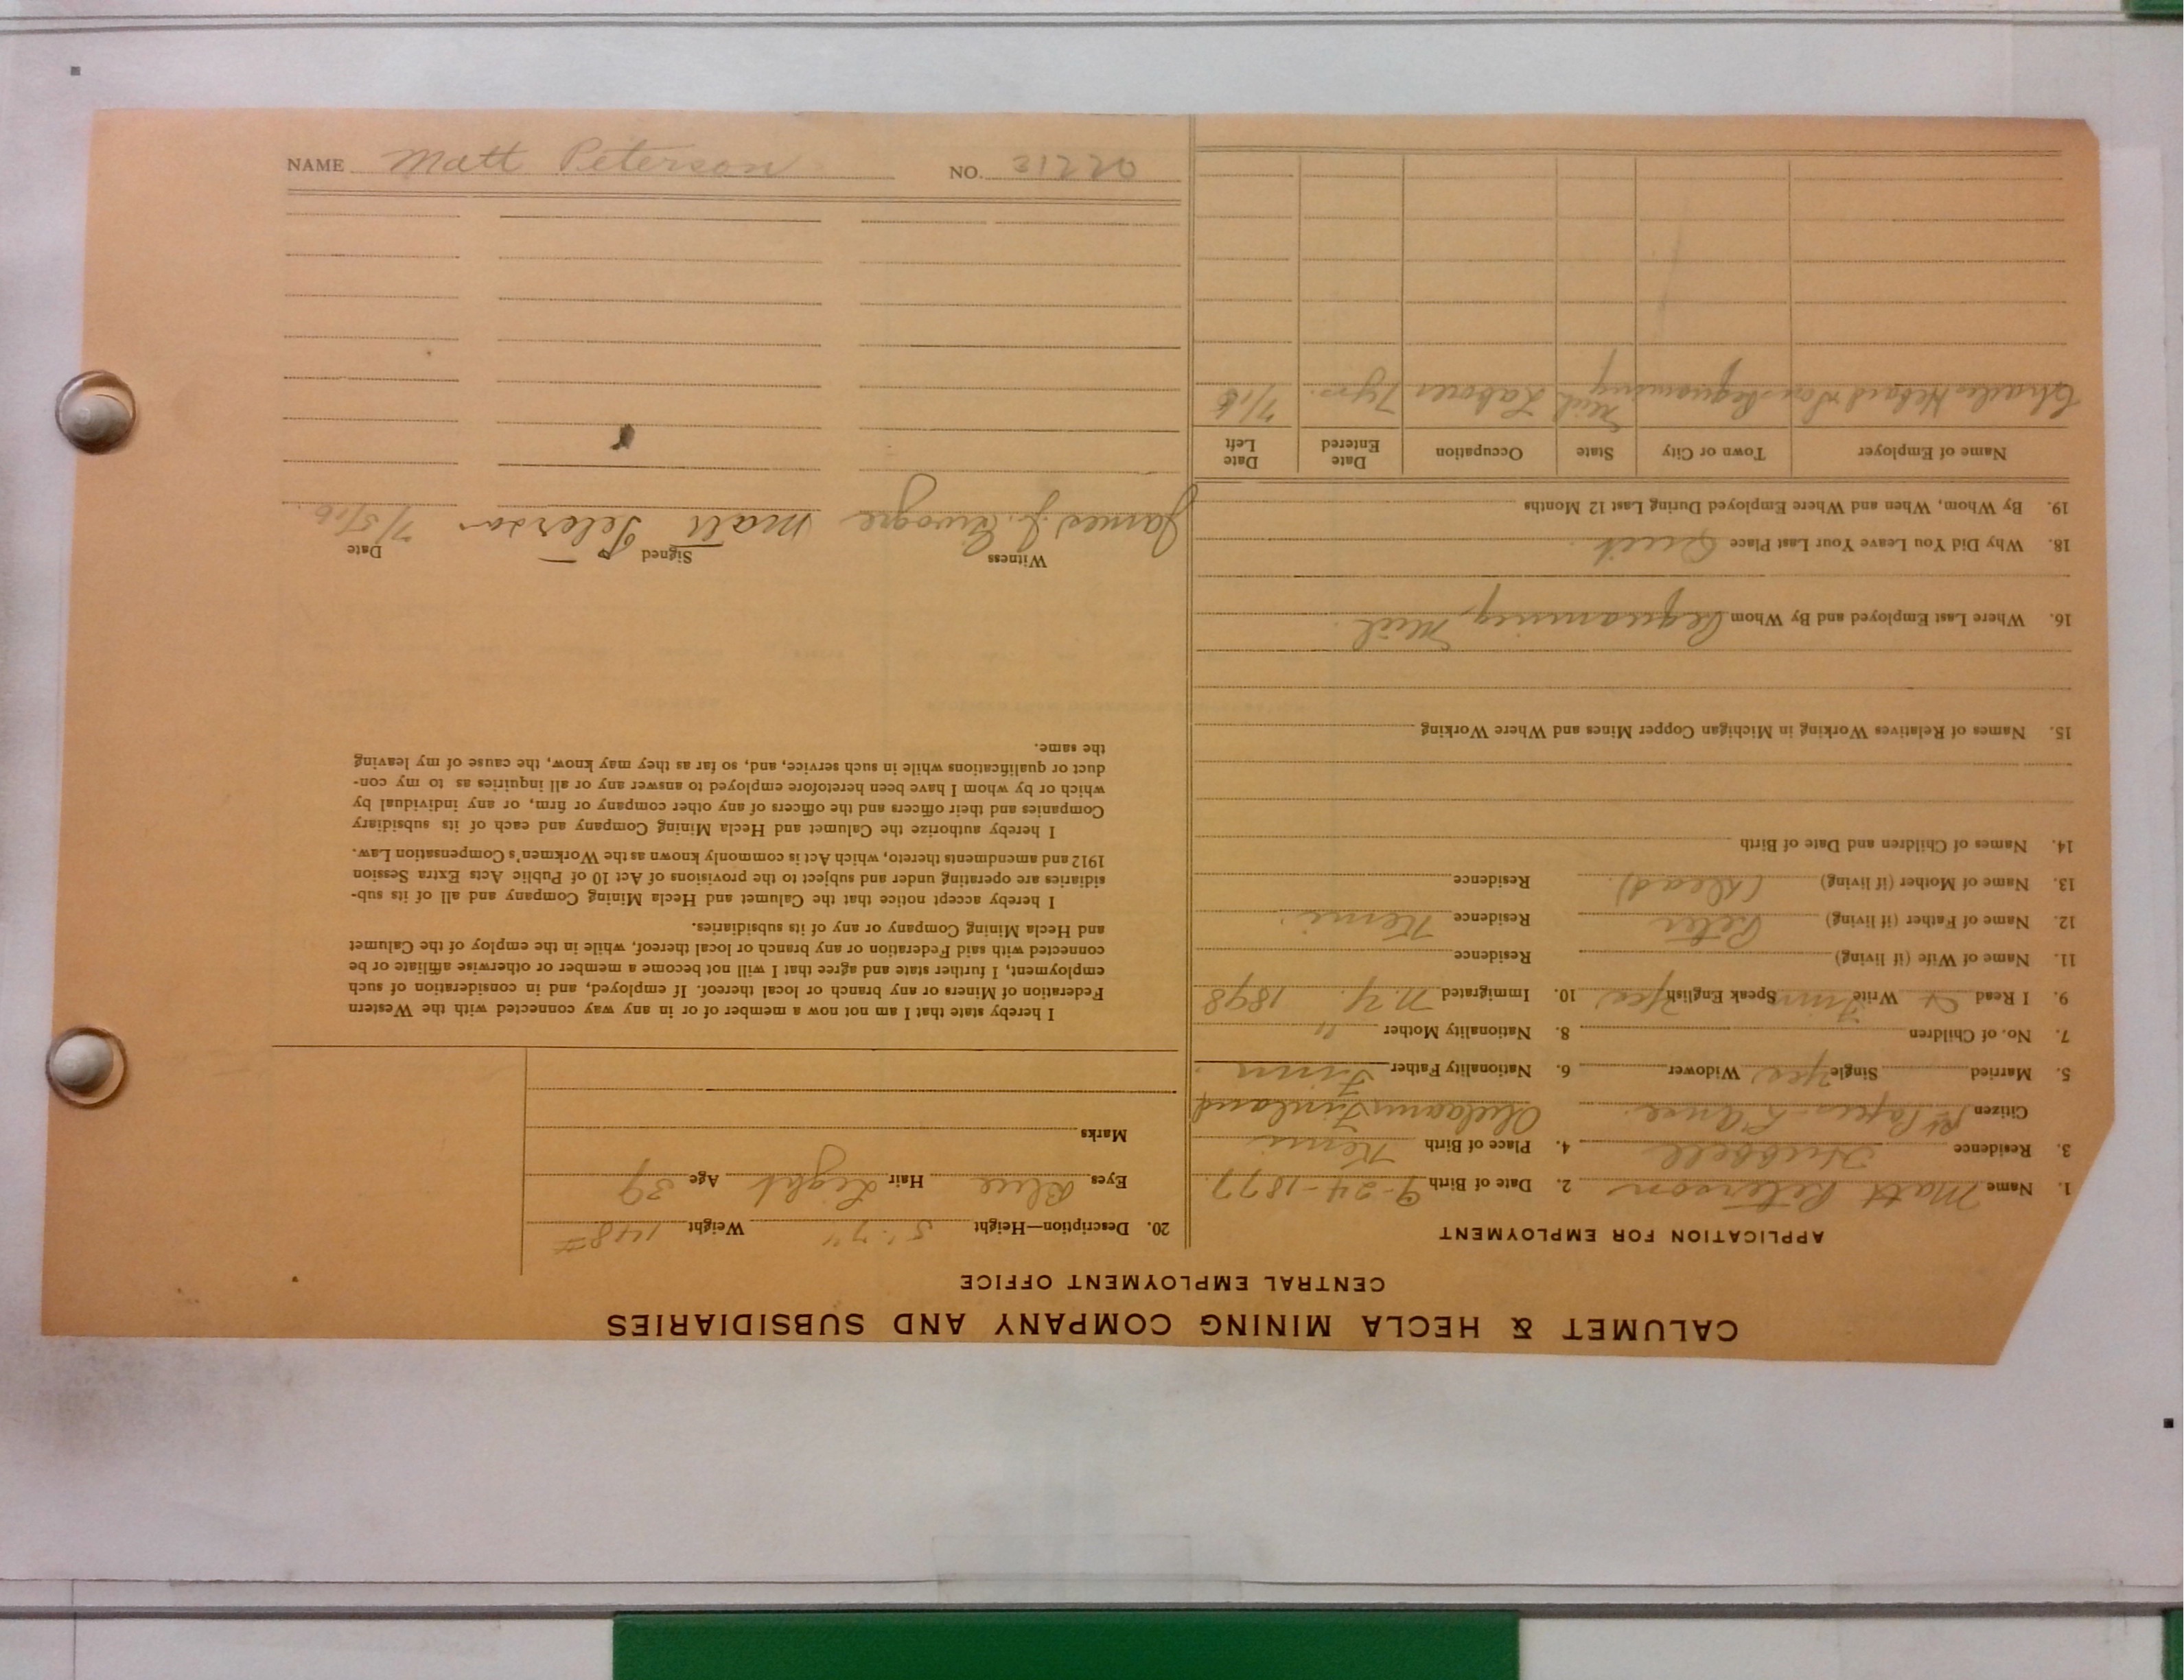 CALUMET & HECLA MINING COMPANY AND SUBSIDIARIES
CENTRAL EMPLOYMENT OFFICE
APPLICATION FOR EMPLOYMENT
1. Name Matt Peterson 2. Date of Birth 9-24-1877
3. Residence Hubbell 4. Place of Birth Kemi
Citizen 1st Papers L'Anse. Finland
5. Married Single Yes Widower 6. Nationality Father Finn
7. No. of Children 8. Nationality Mother "
9. I Read & Write Finn Speak English Yes 10. Immigrated N.Y. 1898
11. Name of Wife (if living) Residence
12. Name of Father (if living) Peter Residence Kemi
13. Name of Mother (if living) (Dead) Residence
14. Names of Children and Date of Birth
15. Names of Relatives Working in Michigan Copper Mines and Where Working
16. Where Last Employed and By Whom Pequaming Mich
18. Why Did You Leave Your Last Place Quit
19. By Whom, When and Where Employed During Last 12 Months
Name of Employer Town or City State Occupation Date Entered Date Left
Charles Hebard & Son Pequaming Mich Laborer 7 yrs. 7/16
20. Description—Height 5' 7" Weight 148#
Eyes Blue Hair Light Age 39
Marks
I hereby state that I am not now a member of or in any way connected with the Western
Federation of Miners or any branch or local thereof. If employed, and in consideration of such
employment, I further state and agree that I will not become a member or otherwise affiliate or be
connected with said Federation or any branch or local thereof, while in the employ of the Calumet
and Hecla Mining Company or any of its subsidiaries.
I hereby accept notice that the Calumet and Hecla Mining Company and all of its sub-
sidiaries are operating under and subject to the provisions of Act 10 of Public Acts Extra Session
1912 and amendments thereto, which Act is commonly known as the Workmen's Compensation Law.
I hereby authorize the Calumet and Hecla Mining Company and each of its subsidiary
Companies and their officers and the officers of any other company or firm, or any individual by
which or by whom I have been heretofore employed to answer any or all inquiries as to my con-
duct or qualifications while in such service, and, so far as they may know, the cause of my leaving
the same.
Witness Signed Date
James J. Matt Peterson 7/5/16.
NAME Matt Peterson NO. 31220